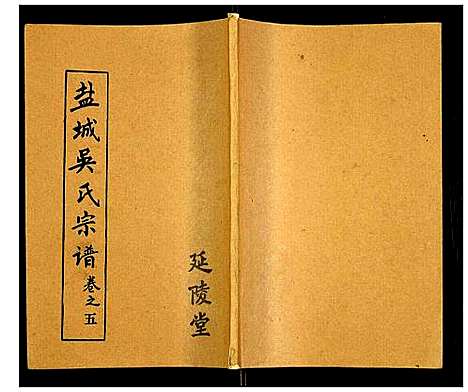 盐城吴氏宗谱 卷之五
延陵堂